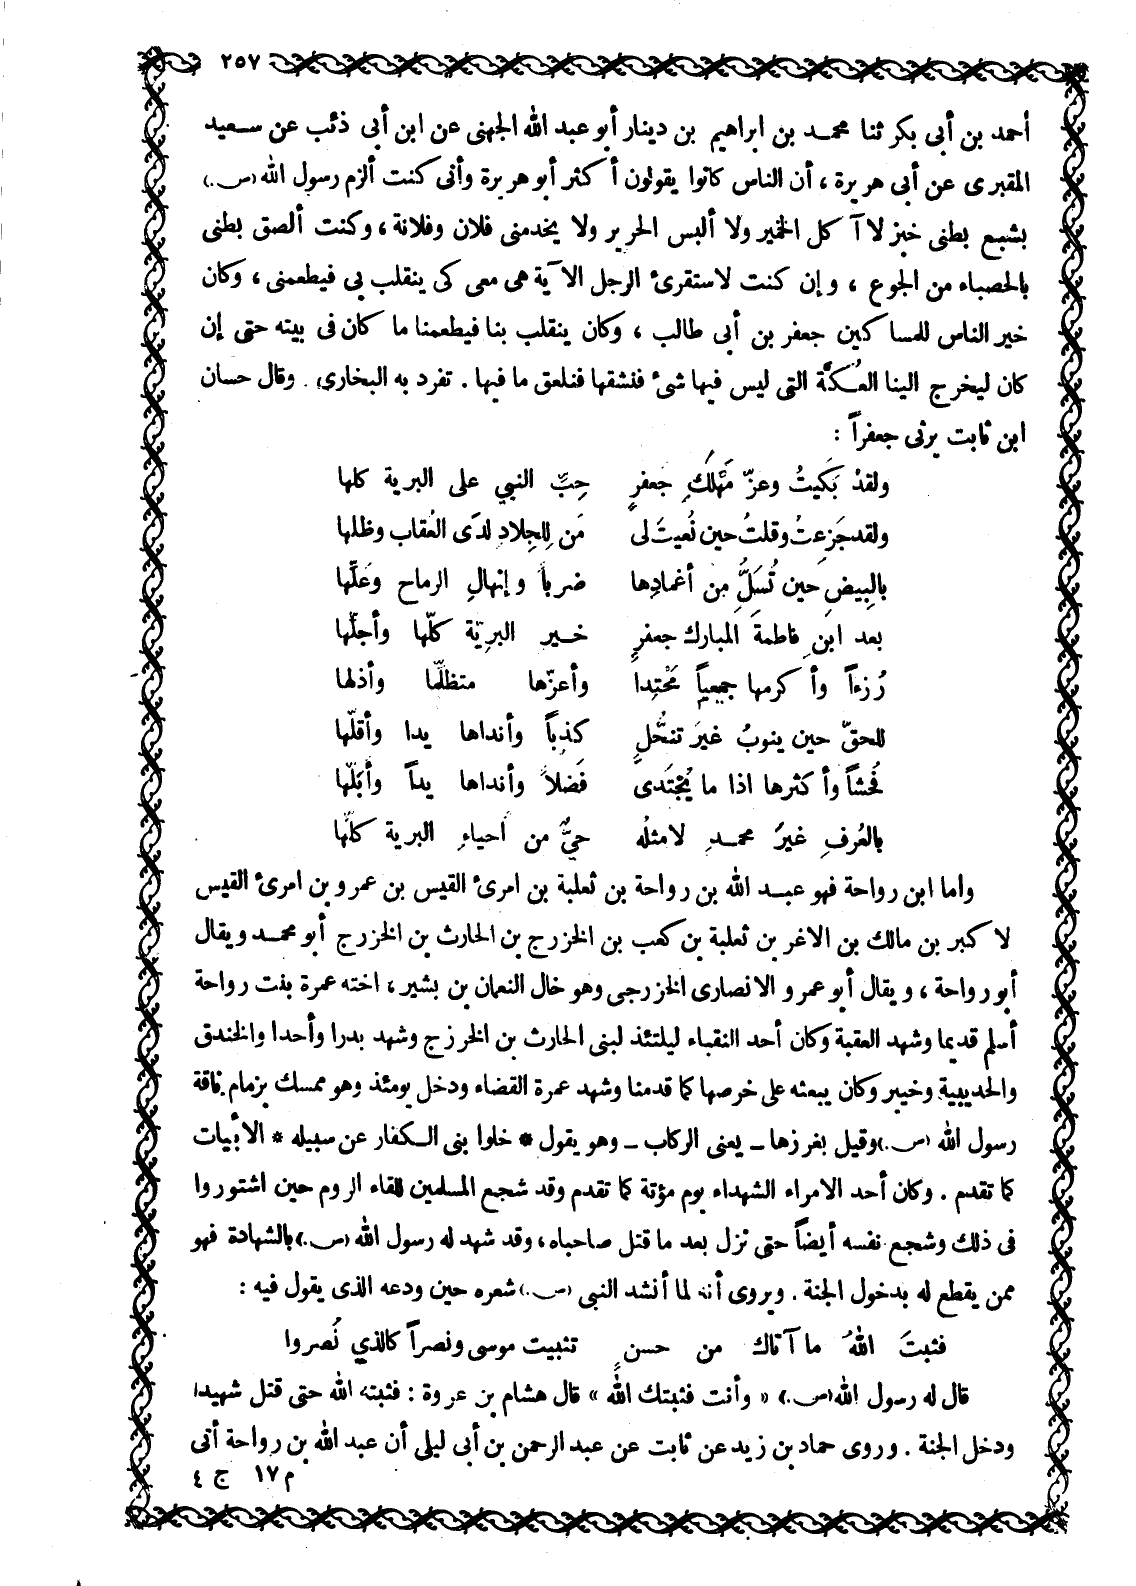 ٢٥٧
أحمد بن أبى بكر ثنا محمد بن ابراهيم بن دينار أبو عبد الله الجهنى عن ابن أبى ذئب عن سعيد
المقبرى عن أبى هريرة ، أن الناس كانوا يقولون أكثر أبو هريرة وأنى كنت ألزم رسول الله (ص.)
بشبع بطنى خبز لا آكل الخمير ولا ألبس الحرير ولا يخدمنى فلان وفلانة ، وكنت ألصق بطنى
بالحصباء من الجوع ، وإن كنت لاستقرئ الرجل الآية هى معى كى ينقلب بي فيطعمنى ، وكان
خير الناس للمساكين جعفر بن أبى طالب ، وكان ينقلب بنا فيطعمنا ما كان فى بيته حتى إن
كان ليخرج الينا العُكَّة التى ليس فيها شئ فنشقها فنلعق ما فيها . تفرد به البخارى . وقال حسان
ابن ثابت يرثى جعفراً :
ولقدْ بَكَيتُ وعزّ مَهْلَكِ جعفرٍ حِبِّ النبي على البرية كلها
ولقد جَزِعتُ وقلتُ حين نُعيتَ لى مَن لِلجِلادِ لدَى العُقاب وظلها
بالبِيضِ حين تُسَلُّ مِن أغمادِها ضرباً وإنهالِ الرماح وعَلّها
بعد ابنِ فاطمةَ المبارك جعفرٍ خير البريّة كلّها وأجلّها
رُزءاً وأكرمها جميعاً مَحْتِدا وأعزّها متظلّما وأذلها
للحقّ حين ينوبُ غيرَ تنحُّلٍ كذِباً وأنداها يدا وأقلّها
فُحشاً وأكثرها اذا ما يُجْتَدى فَضلاً وأنداها يداً وأبَلّها
بالعُرفِ غيرَ محمدٍ لا مثلُه حيٌّ من أحياءِ البرية كلّها
واما ابن رواحة فهو عبد الله بن رواحة بن ثعلبة بن امرئ القيس بن عمرو بن امرئ القيس
لا كبر بن مالك بن الاغر بن ثعلبة بن كعب بن الخزرج بن الحارث بن الخزرج أبو محمد ويقال
أبو رواحة ، ويقال أبو عمرو الانصارى الخزرجى وهو خال النعمان بن بشير ، اخته عمرة بنت رواحة
أسلم قديما وشهد العقبة وكان أحد النقباء ليلتئذ لبنى الحارث بن الخزرج وشهد بدرا وأحدا والخندق
والحديبية وخيبر وكان يبعثه على خرصها كما قدمنا وشهد عمرة القضاء ودخل يومئذ وهو ممسك بزمام ناقة
رسول الله (ص.) وقيل بغرزها ــ يعنى الركاب ــ وهو يقول * خلوا بنى الكفار عن سبيله * الأبيات
كما تقدم . وكان أحد الامراء الشهداء يوم مؤتة كما تقدم وقد شجع المسلمين للقاء الروم حين اشتوروا
فى ذلك وشجع نفسه أيضاً حتى نزل بعد ما قتل صاحباه ، وقد شهد له رسول الله (ص.) بالشهادة فهو
ممن يقطع له بدخول الجنة . ويروى أنه لما أنشد النبى (ص.) شعره حين ودعه الذى يقول فيه :
فثبتَ اللهُ ما آتاك من حسنٍ تثبيت موسى ونصراً كالذي نُصروا
قال له رسول الله (ص.) « وأنت فثبتك الله » قال هشام بن عروة : فثبته الله حتى قتل شهيدا
ودخل الجنة . وروى حماد بن زيد عن ثابت عن عبد الرحمن بن أبى ليلى أن عبد الله بن رواحة أتى
م ١٧ ج ٤